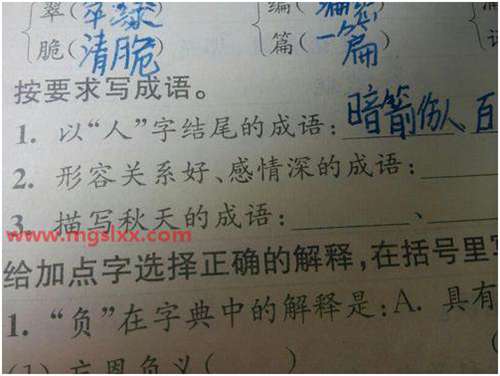 翠(翠绿 编(
脆(清脆) 篇(一篇)
按要求写成语。
1. 以“人”字结尾的成语:暗箭伤人 百
2. 形容关系好、感情深的成语:
3. 描写秋天的成语: 、
www.mgslxx.com
给加点字选择正确的解释,在括号里写
1. “负”在字典中的解释是:A. 具有
(1) 忘恩负义( )